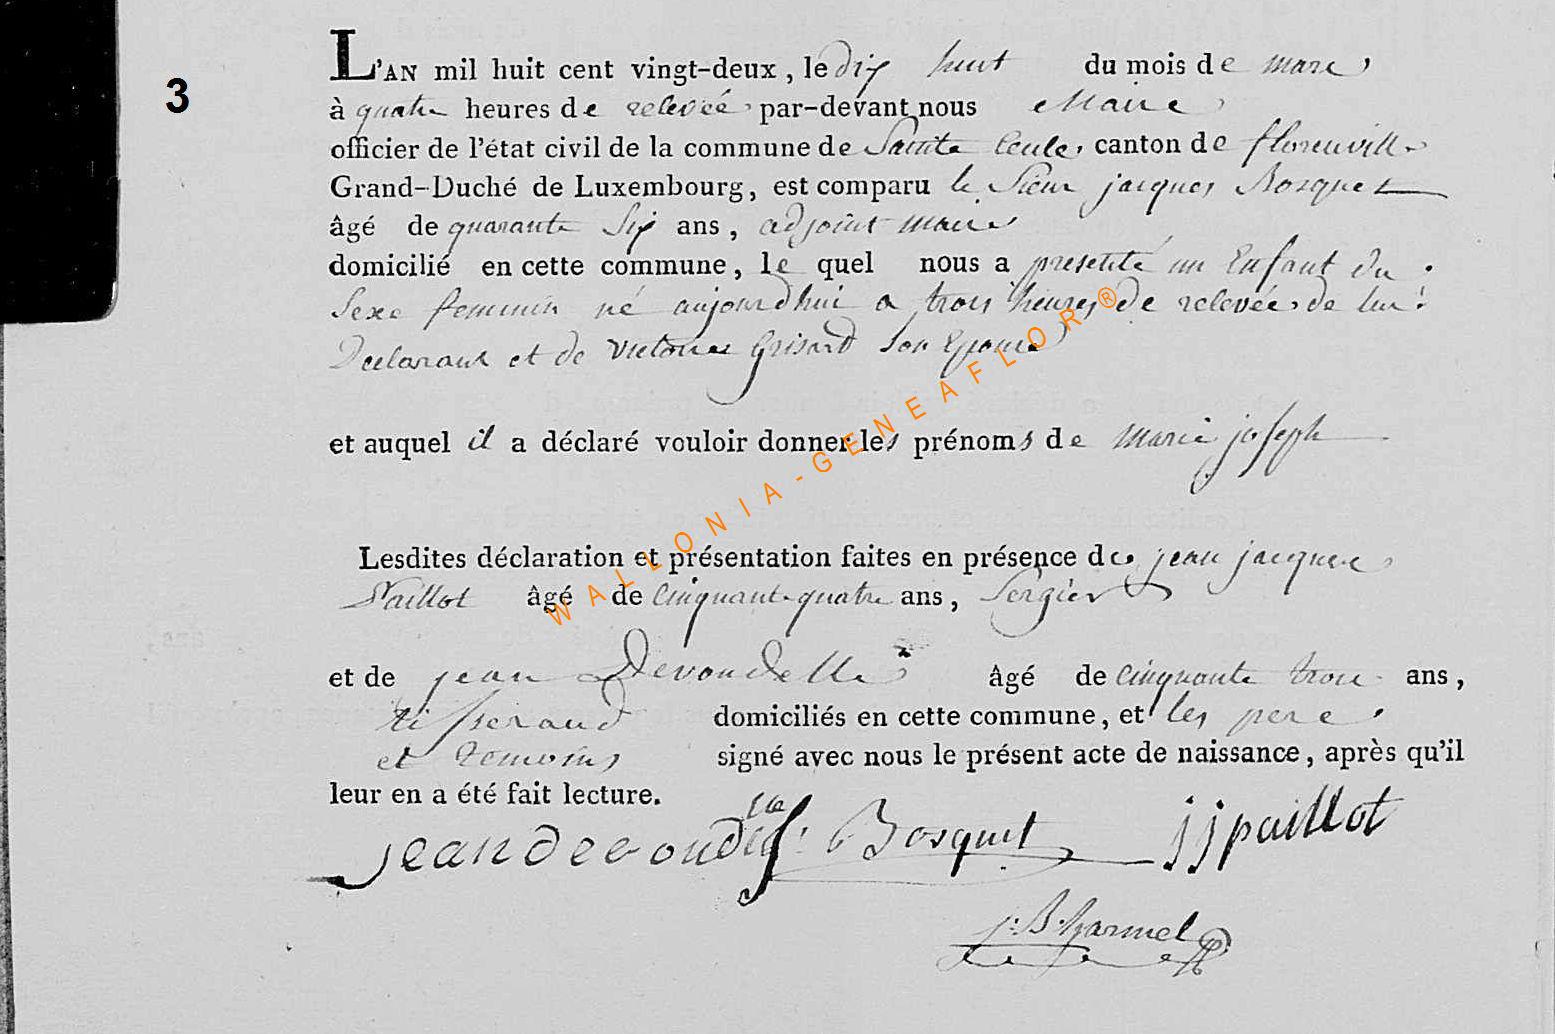 3
L'AN mil huit cent vingt-deux, le dix huit du mois de mars
à quatre heures de relevée par-devant nous Maire
officier de l'état civil de la commune de Sainte Cecile, canton de florenville
Grand-Duché de Luxembourg, est comparu le Sieur jacques Bosquet
âgé de quarante Six ans, adjoint maire
domicilié en cette commune, le quel nous a presenté un Enfant du
Sexe feminin né aujourdhui a trois heures de relevée de lui
Declarant et de Victoire Grisard son Epouse
et auquel il a déclaré vouloir donner les prénoms de Marie joseph
Lesdites déclaration et présentation faites en présence de jean jacques
Paillot âgé de Cinquante quatre ans, Sergier
et de jean Devoudelle âgé de Cinquante trois ans,
tisserand domiciliés en cette commune, et les pere
et temoins signé avec nous le présent acte de naissance, après qu'il
leur en a été fait lecture.
jean devoudelle J: Bosquet jj paillot
j: B. harmel
WALLONIA-GENEAFLOR®